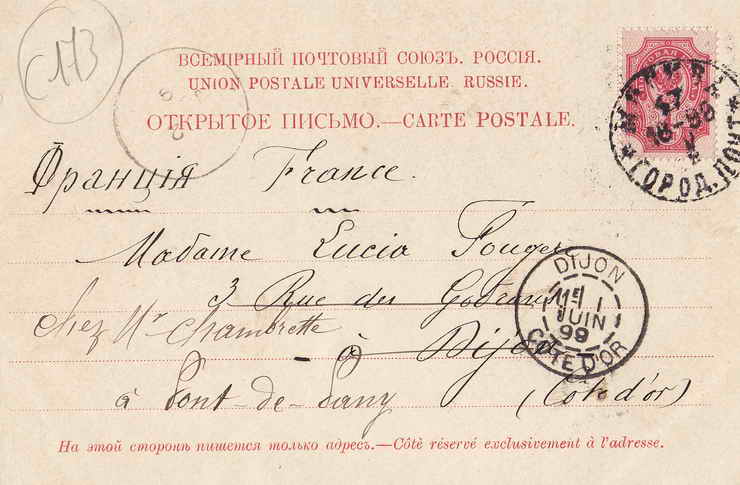 C113
ВСЕМІРНЫЙ ПОЧТОВЫЙ СОЮЗЪ. РОССІЯ.
UNION POSTALE UNIVERSELLE. RUSSIE.
ОТКРЫТОЕ ПИСЬМО.—CARTE POSTALE.
МОСКВА
17
ГОРОД. ПОЧТ.
Франція France.
Madame Lucia Fouger
3 Rue des Godrans
chez Mr Chambrette
à Dijon
à Pont-de-Pany (Cote d'or)
DIJON
11E 1
JUIN
99
COTE D'OR
На этой сторонѣ пишется только адресъ.—Côté réservé exclusivement à l'adresse.